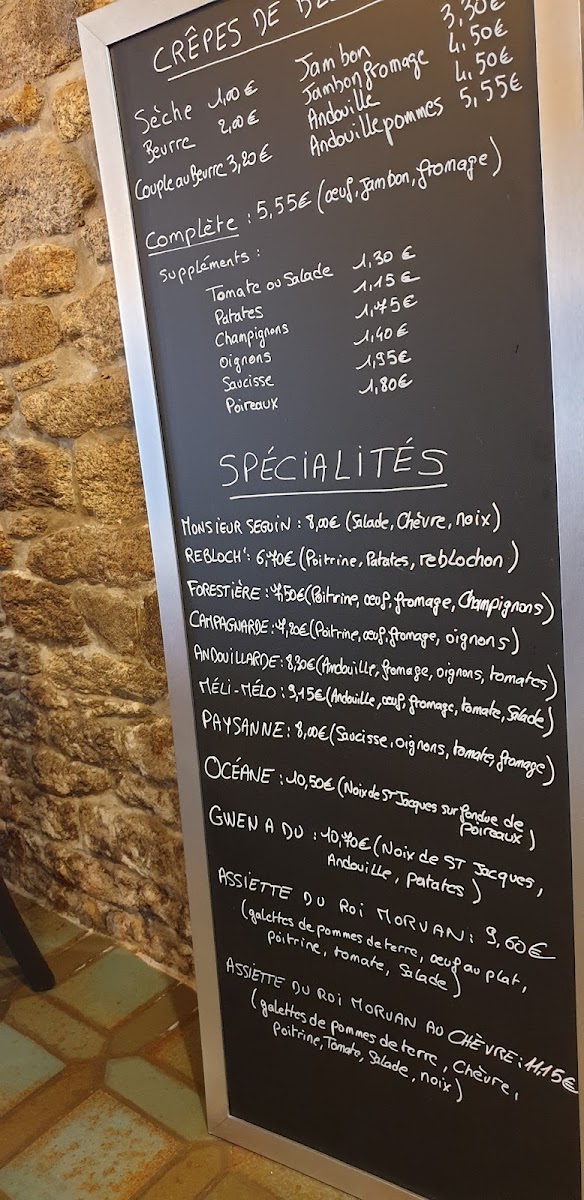 CRÊPES DE
Sèche 1,00€
Beurre 2,00€
Couple au Beurre 3,20€
Jambon 3,30€
Jambon fromage 4,50€
Andouille 4,50€
Andouille pommes 5,55€
Complète : 5,55€ (œuf, Jambon, fromage)
Suppléments :
Tomate ou Salade 1,30 €
Patates 1,15€
Champignons 1,75€
Oignons 1,40€
Saucisse 1,95€
Poireaux 1,80€
SPÉCIALITÉS
MONSIEUR SEGUIN : 8,00€ (Salade, Chèvre, noix)
REBLOCH' : 6,70€ (Poitrine, Patates, reblochon)
FORESTIÈRE : 7,50€ (Poitrine, œuf, fromage, Champignons)
CAMPAGNARDE : 7,20€ (Poitrine, œuf, fromage, oignons)
ANDOUILLARDE : 8,30€ (Andouille, fromage, oignons, tomates)
MÉLI-MÉLO : 9,15€ (Andouille, œuf, fromage, tomate, Salade)
PAYSANNE : 8,00€ (Saucisse, oignons, tomates, fromage)
OCÉANE : 10,50€ (Noix de ST Jacques sur fondue de
poireaux)
GWEN A DU : 10,70€ (Noix de ST Jacques,
Andouille, patates)
ASSIETTE DU ROI MORVAN : 9,60€
(galettes de pommes de terre, œuf au plat,
poitrine, tomate, Salade)
ASSIETTE DU ROI MORVAN AU CHÈVRE : 11,15€
(galettes de pommes de terre, Chèvre,
Poitrine, Tomate, Salade, noix)